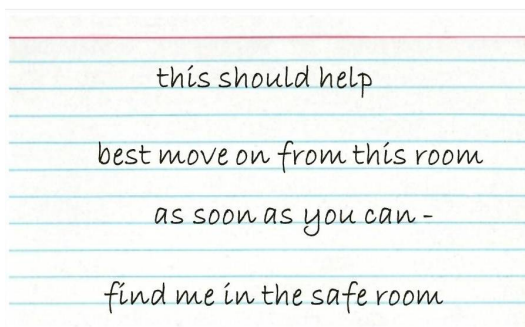 this should help
best move on from this room
as soon as you can -
find me in the safe room